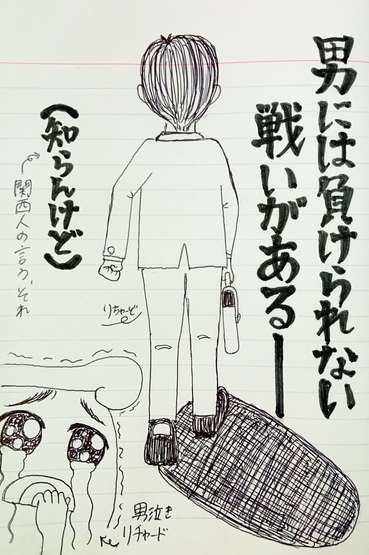 男には負けられない
戦いがあるー
（知らんけど）
関西人の言う、それ
りちゃーど
男泣き
リチャード